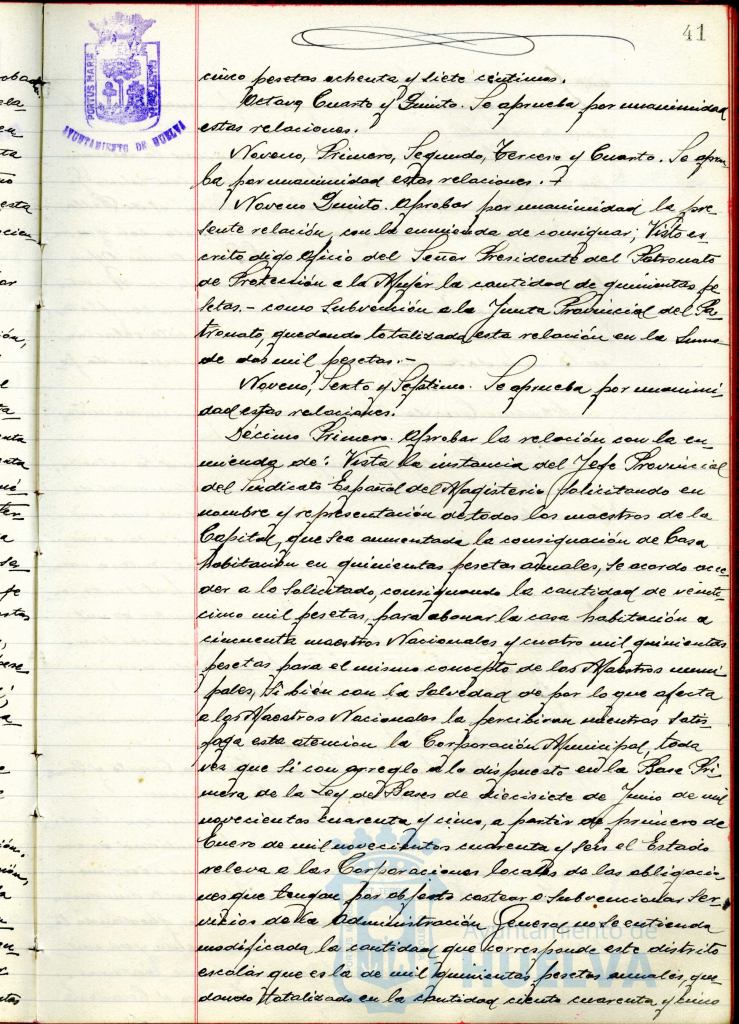 41
PORTUS MARIS
AYUNTAMIENTO DE HUELVA
cinco pesetas ochenta y siete céntimos.
Octavo, Cuarto y Quinto. Se aprueba por unanimidad
estas relaciones.
Noveno, Primero, Segundo, Tercero y Cuarto. Se aprue
ba por unanimidad estas relaciones.
Noveno Quinto. Aprobar por unanimidad la pre-
sente relación, con la enmienda de consignar; Visto es-
crito digo oficio del Señor Presidente del Patronato
de Protección a la Mujer la cantidad de quinientas pe
setas.- como subvención a la Junta Provincial del Pa-
tronato, quedando totalizada esta relación en la suma
de dos mil pesetas.-
Noveno, Sexto y Séptimo. Se aprueba por unanimi-
dad estas relaciones.
Décimo Primero. Aprobar la relación con la en-
mienda de: Vista la instancia del Jefe Provincial
del Sindicato Español del Magisterio, solicitando en
nombre y representación de todos los maestros de la
Capital, que sea aumentada la consignación de Casa
habitación en quinientas pesetas anuales, se acordo acce-
der a lo solicitado, consignando la cantidad de veinti-
cinco mil pesetas, para abonar la casa habitación a
cincuenta maestros Nacionales y cuatro mil quinientas
pesetas para el mismo concepto de los Maestros muni
pales, si bién con la salvedad de por lo que afecta
a los Maestros Nacionales la percibiran mientras satis-
faga esta atencion la Corporación Municipal, toda
vez que si con arreglo a lo dispuesto en la Base Pri-
mera de la Ley de Bases de diecisiete de Junio de mil
novecientos cuarenta y cinco, a partir de primero de
Enero de mil novecientos cuarenta y seis el Estado
releva a las Corporaciones locales de las obligacio-
nes que tengan por objeto costear o subvencionar ser-
vicios de la Administración General no se entienda
modificada la cantidad que corresponde este distrito
escolar que es la de mil quinientas pesetas anuales, que-
dando totalizado en la cantidad ciento cuarenta y cinco
Ayuntamiento de
HUELVA